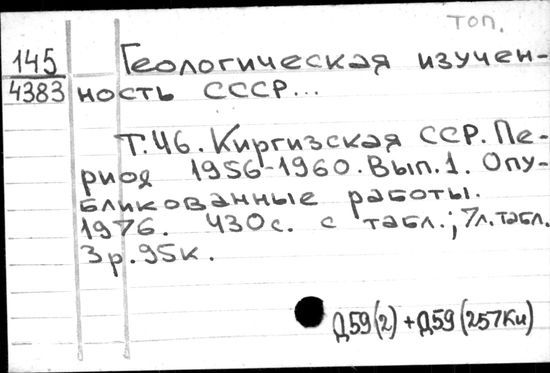 топ.
145 Геологическая изучен-
4383 ность СССР...
Т.46. Киргизская ССР. Пе-
риод 1956-1960. Вып.1. Опу-
бликованные работы.
1976. 430с. с табл.; 7л. табл.
3р.95к.
Д59(2)+Д59(257Ки)